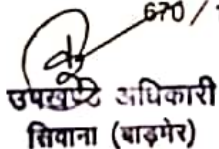 670/
उपखण्ड अधिकारी
सिवाना (बाड़मेर)